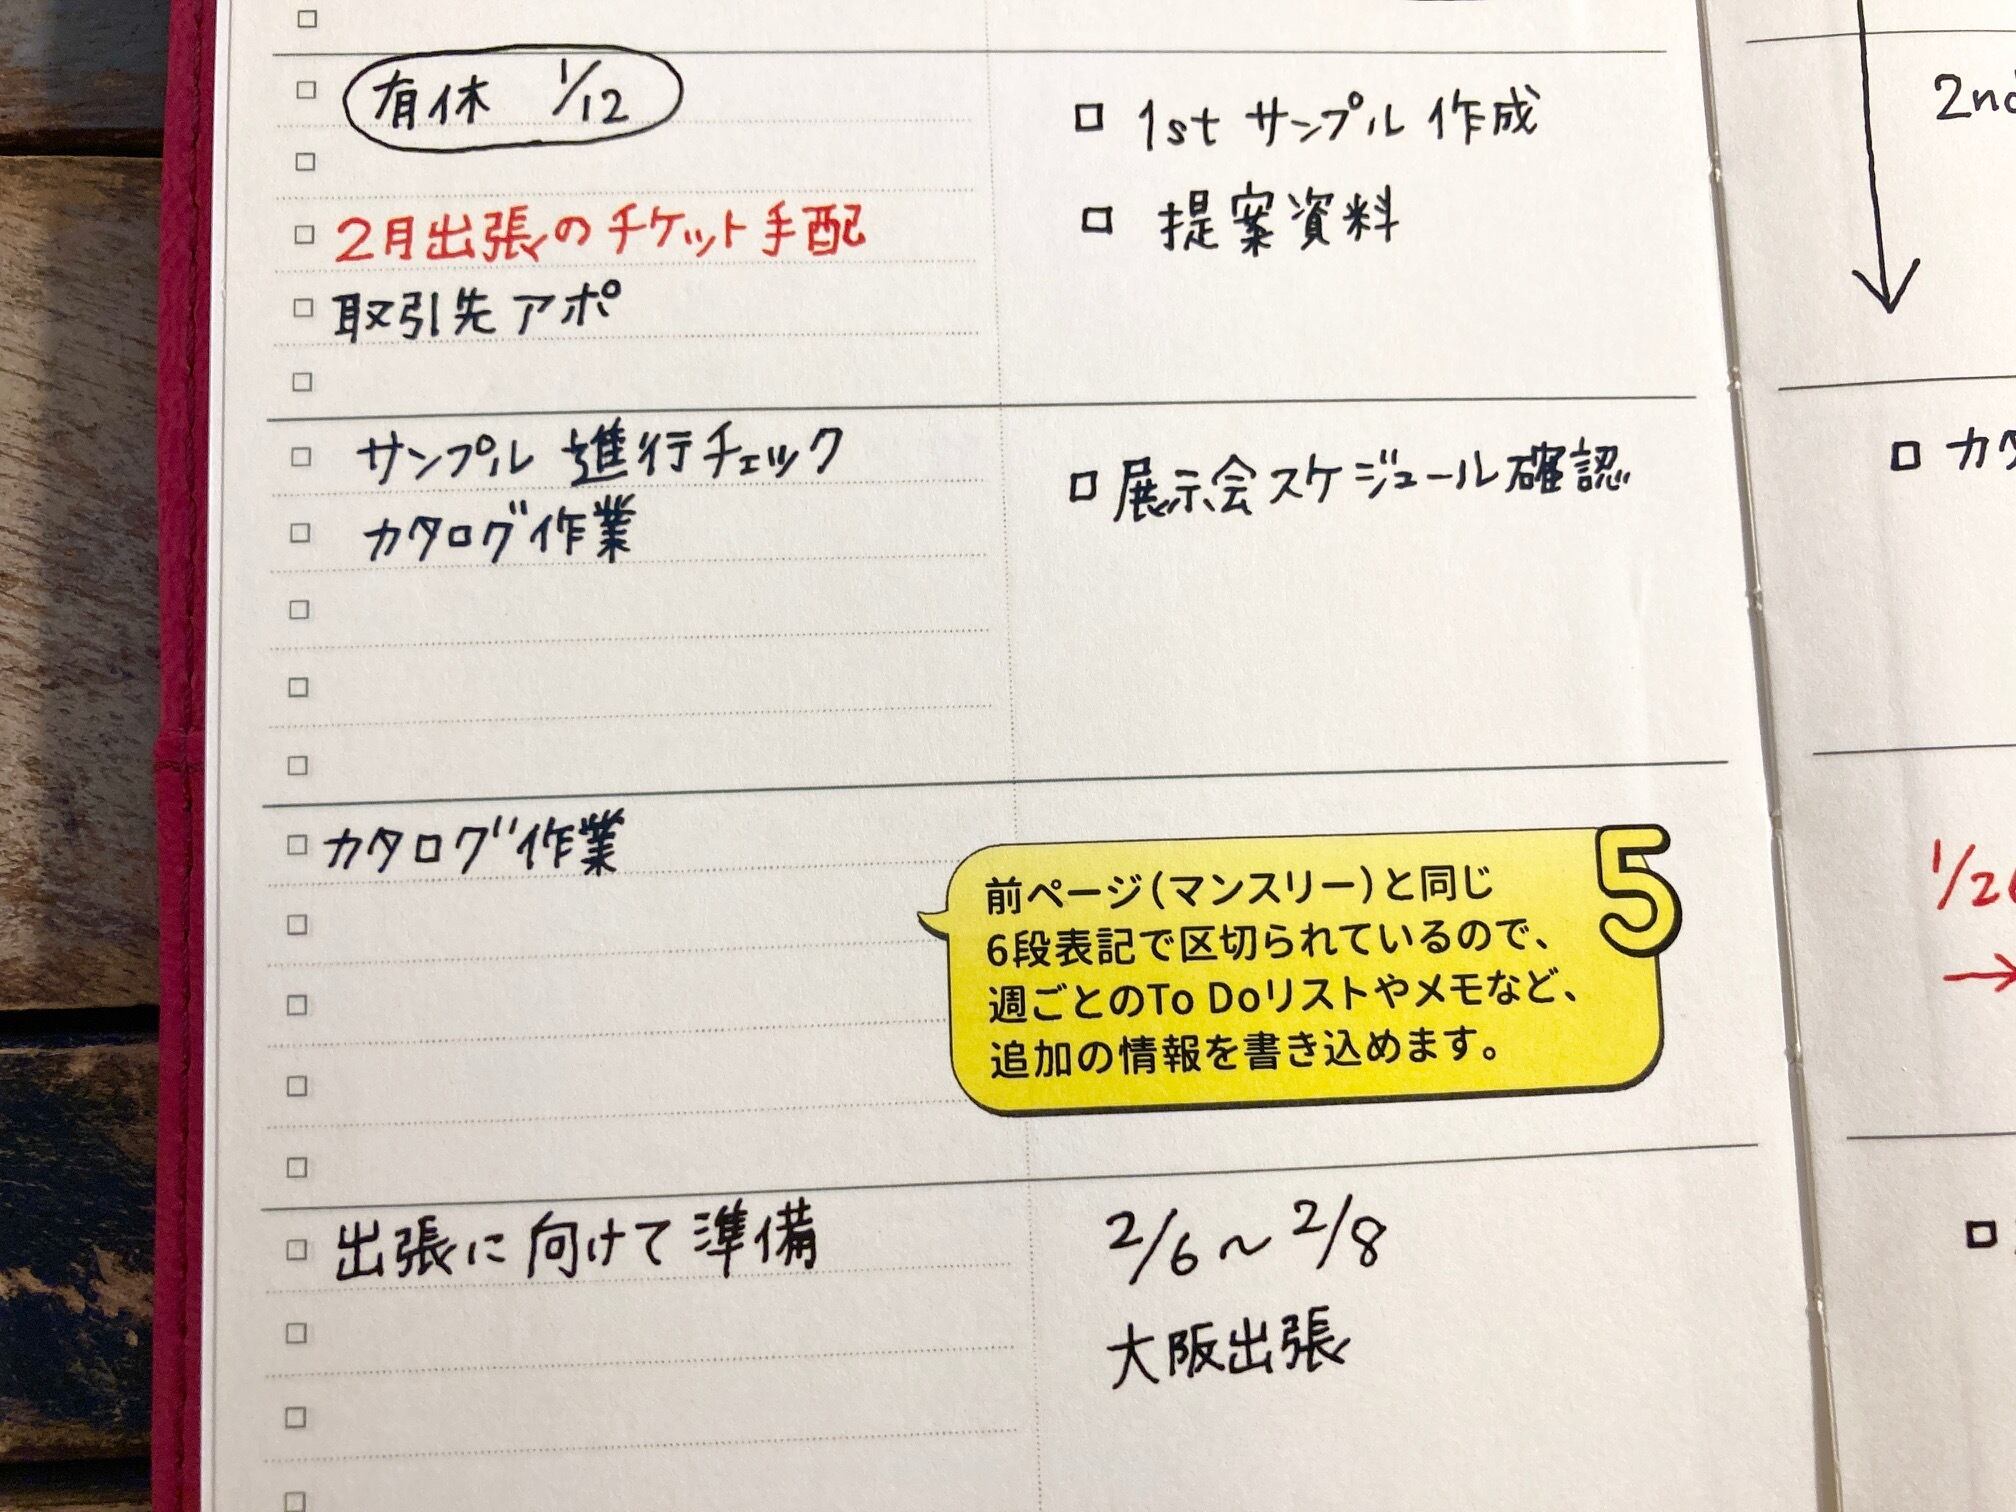 有休 1/12
□ 1st サンプル 作成
□ 提案資料
2月出張のチケット手配
取引先 アポ
サンプル 進行チェック
カタログ作業
□ 展示会スケジュール確認
カタログ作業
5
前ページ(マンスリー)と同じ
6段表記で区切られているので、
週ごとのTo Doリストやメモなど、
追加の情報を書き込めます。
出張に向けて準備
2/6〜2/8
大阪出張